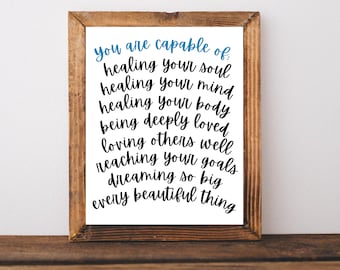 you are capable of:
healing your soul
healing your mind
healing your body
being deeply loved
loving others well
reaching your goals
dreaming so big
every beautiful thing